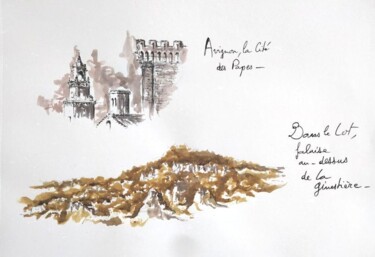 Avignon, la Cité
des Papes _
Dans le Lot,
falaise
au-dessus
de la
ginestière _